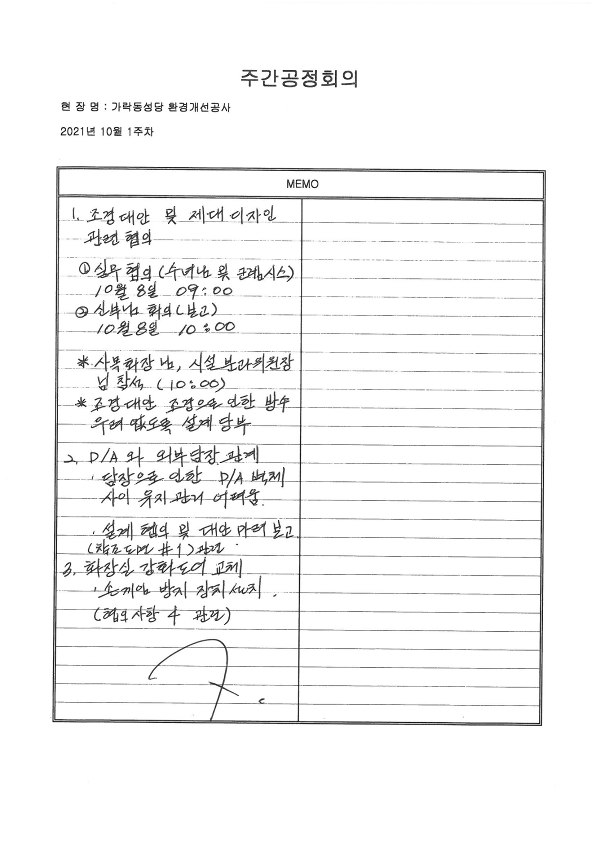 주간공정회의
현 장 명 : 가락동성당 환경개선공사
2021년 10월 1주차
MEMO
1. 조경대안 및 제대 디자인
관련 협의
① 실무 협의 (수녀님 및
10월 8일 09:00
② 신부님 회의 (보고)
10월 8일 10:00
* 사목회장님, 시설분과위원장
님 참석 (10:00)
* 조경대안 조경으로 인한 방수
우려 없도록 설계 당부
2. D/A 와 외부담장 관계
· 담장으로 인한 D/A 벽체
사이 유지관리 어려움.
· 설계 협의 및 대안 마련 보고.
(참조도면 #1) 관련.
3. 화장실 강화도어 교체
· 손끼임 방지 장치 설치.
(협의사항 4 관련)